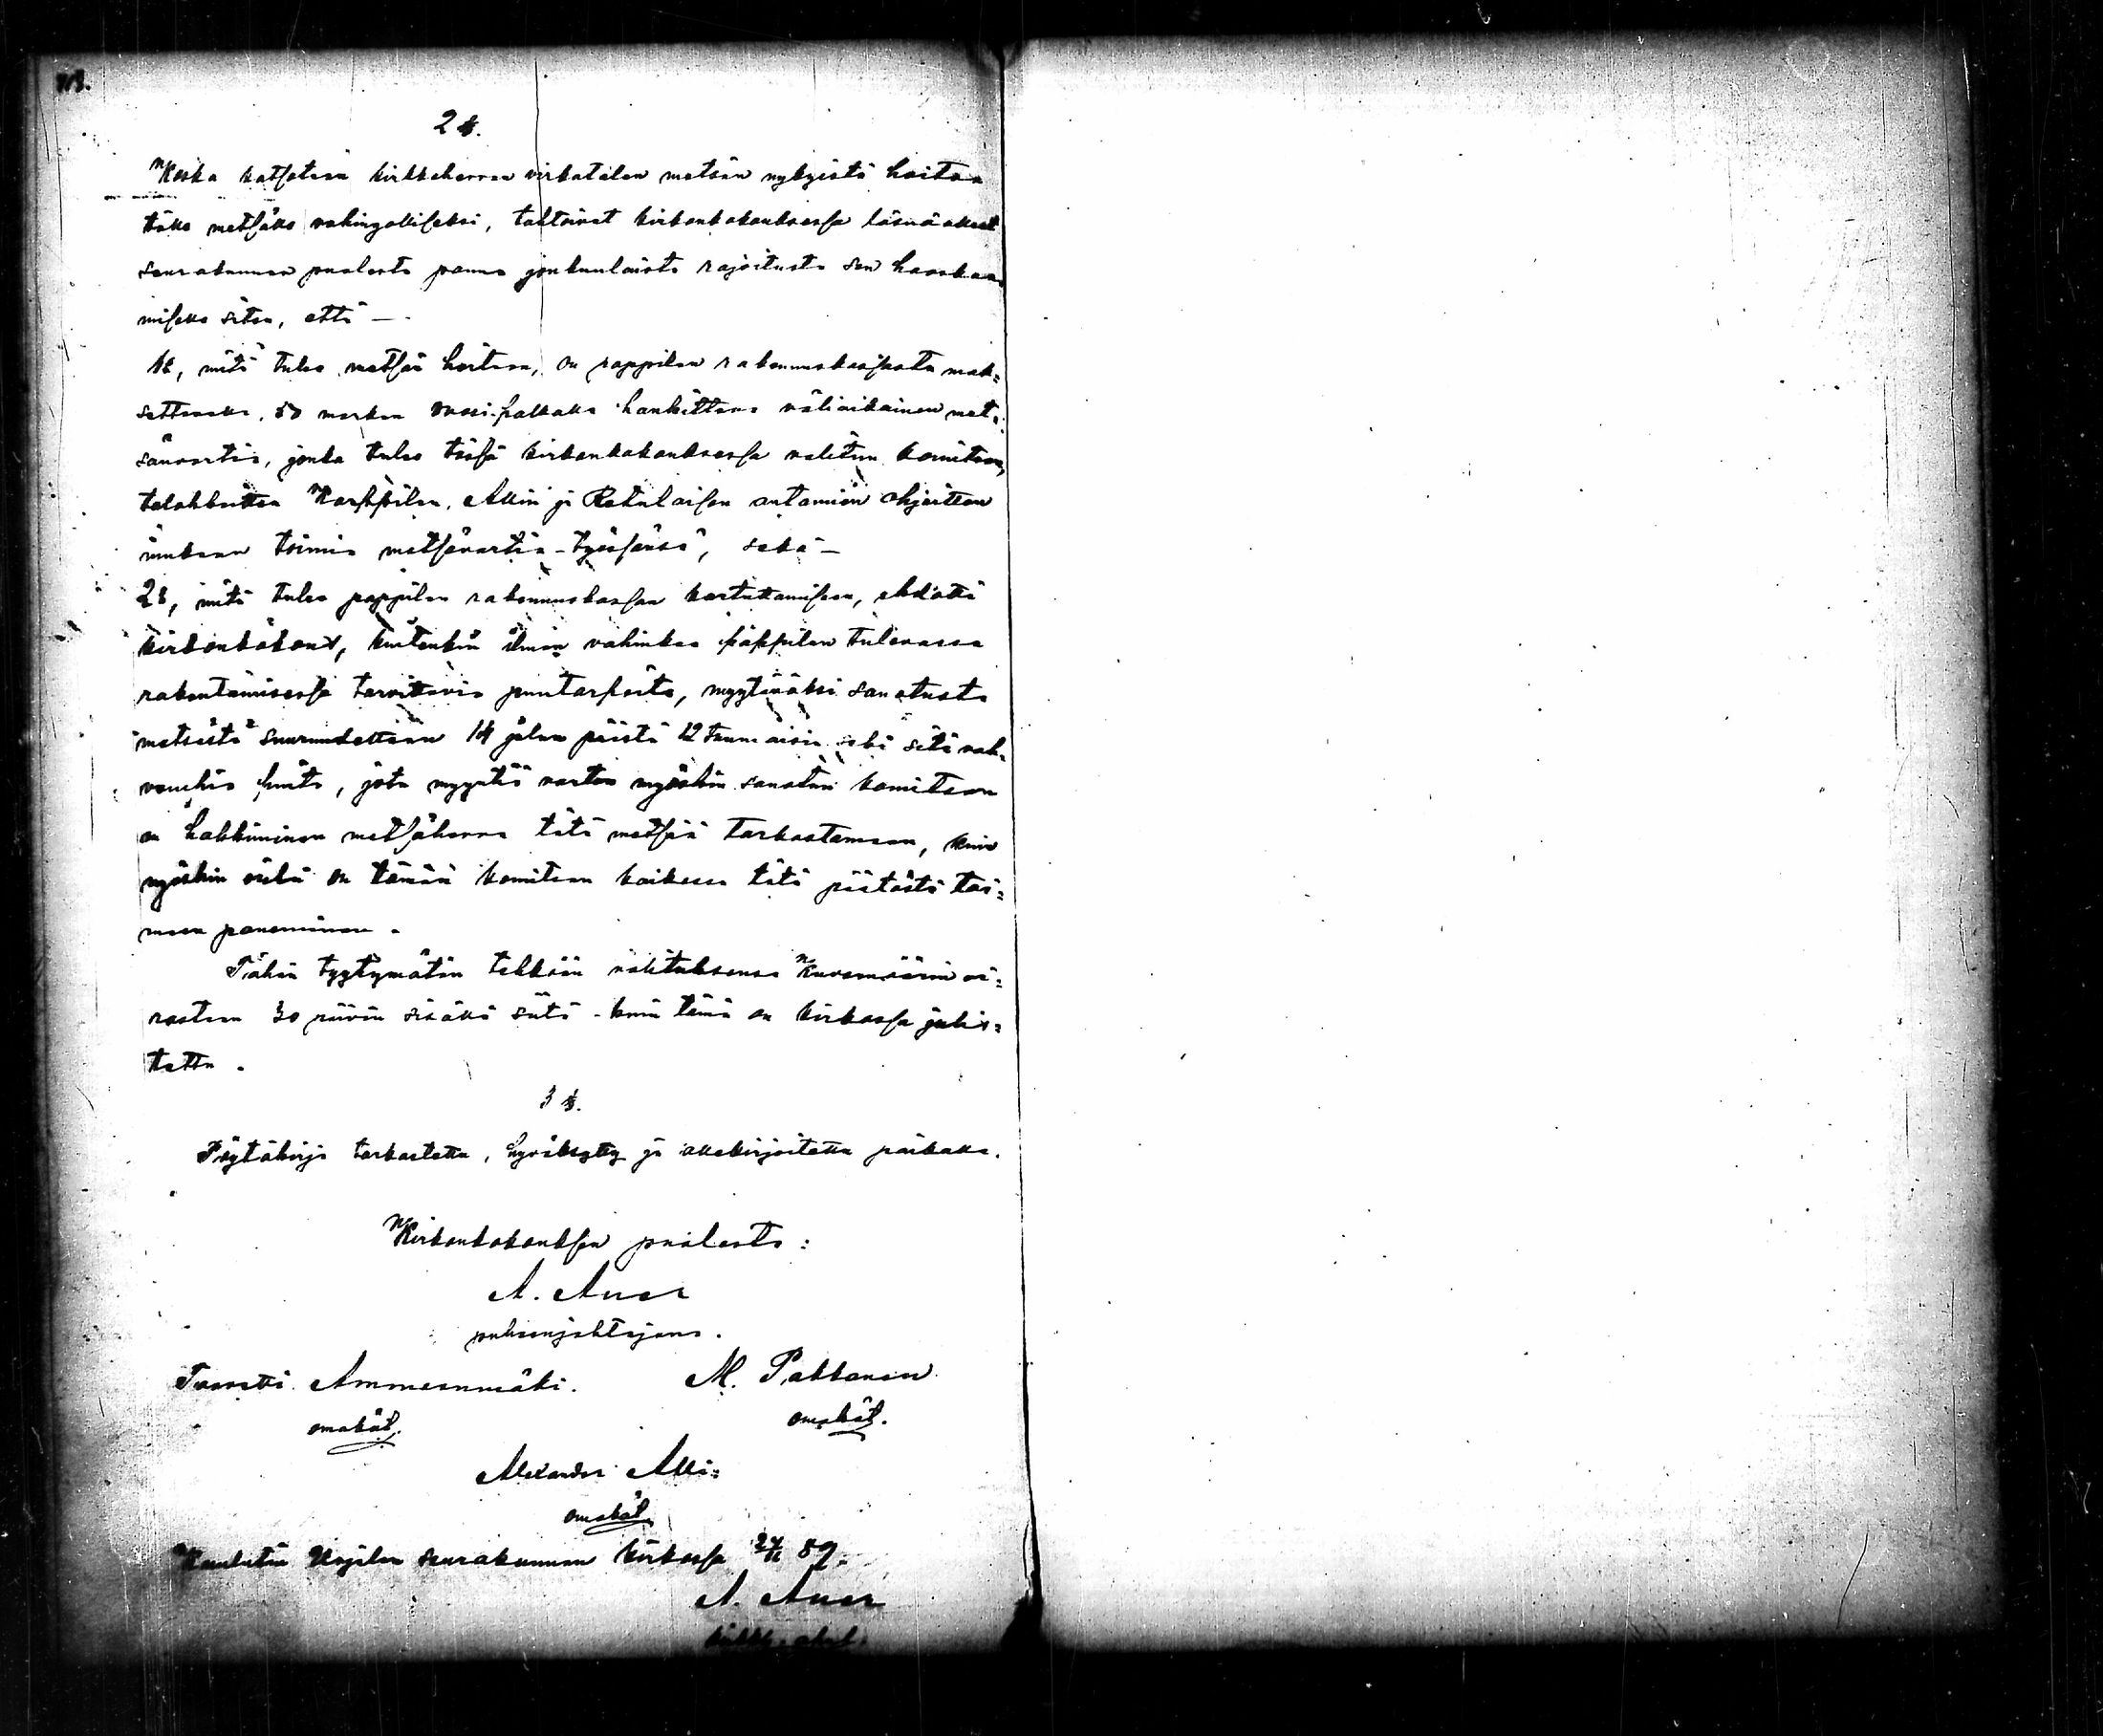 2 §.
Koska katsotaan kirkkoherran virkatalon metsän nykyistä hoitoa
tälle metsälle vahingolliseksi, tahtoivat kirkonkokouksessa läsnäolleet
seurakunnan puolesta panna jonkunlaista rajoitusta sen haaskaa
miselle siten, että —
1§, mitä tulee metsän hoitoon, on pappilan rakennuskassasta mak=
settavalla, 50 markan vuosipalkalla hankittava väliaikainen met=
sänvartia, jonka tulee tässä kirkonkokouksessa valitun komitean,
talokkaitten Karppilan, Allin ja Retulaisen antamien ohjeitten
mukaan toimia metsänvartia-työssänsä, sekä —
2§, mitä tulee pappilan rakennuskassan kartuttamiseen, ehdotti
kirkonkokous, kuitenkin ilman vahinkoa pappilan tulevassa
rakentamisessa tarvittavia puutarpeita, myytäväksi sanotusta
metsästä suurundettaan 14 jalan päästä 12 tuumaisia sekä sitä vah=
vempia puita, jota myyntiä varten myöskin sanotun komitean
on hakkiminen metsäherra tätä metsää tarkastamaan, kuin
myöskin on tämän komitean kaikessa tätä päätöstä toi=
meen paneminen.
Tähän tyytymätön tehköön valituksensa Kuvernöörin vi=
rastoon 30 päivän sisällä siitä kuin tämä on kirkossa julis=
tettu.
3 §.
Pöytäkirja tarkastettu, hyväksytty ja allekirjoitettu paikalla.
Kirkonkokouksen puolesta:
A. Auer
puheenjohtajana.
Taavetti Ammeenmäki. M. Pakkanen
omakät. omakät.
Alexander Alli=
omakät.
Kuulutin Urjalan seurakunnan kirkossa 24/11 89.
A. Auer